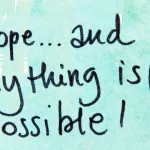 ope...and
ything is
ossible!